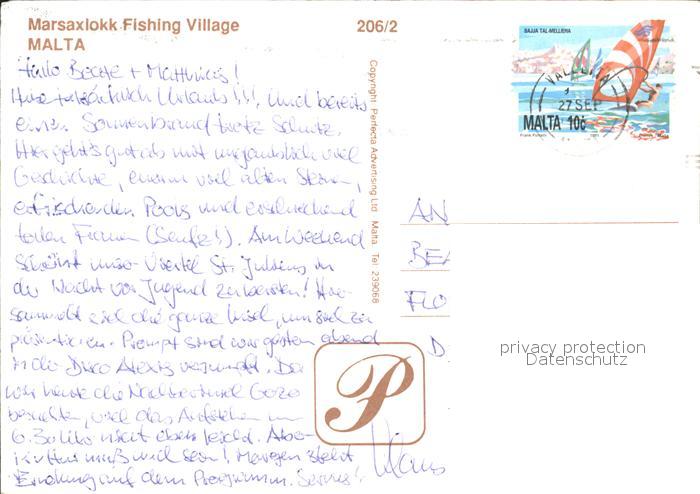 Marsaxlokk Fishing Village
MALTA
206/2
SAJJA TAL-MELLIEHA
VALLETTA
27 SEP
MALTA 10c
Copyright Perfecta Advertising Ltd Malta Tel 239068
Hallo Beate + Matthias!
Urlaub!!!, Und bereits
einen Sonnenbrand trotz Schutz.
Hier geht's gut ab mit unglaublich viel
Geschichte, enorm viel alten Steinen,
erfrischenden Pools und erschreckend
tollen Frauen (Seufz!). Am Weekend
scheint unser Viertel St. Julians in
der Nacht vor Jugend zu bersten! Hier
sammelt sich die ganze Insel, um sich zu
präsentieren. Prompt sind wir gestern abend
in die Disco Alexis. Da
wir heute die Nachbarinsel Gozo
besuchten, viel das Aufstehen um
6.30 Uhr nicht eben leicht. Aber
muß sein! Morgen steht
Erholung auf dem Programm. Servus!
Klaus
AN
BEA
FLO
D
P
privacy protection
Datenschutz